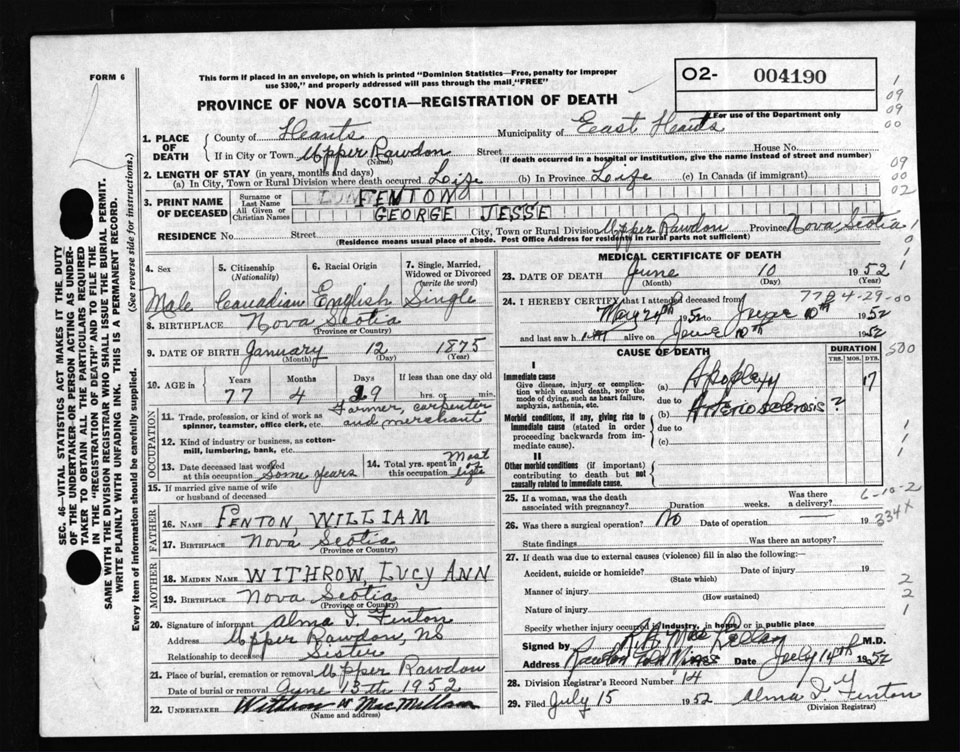 FORM 6
This form if placed in an envelope, on which is printed "Dominion Statistics—Free, penalty for improper
use $300," and properly addressed will pass through the mail, "FREE"
O2- 004190
For use of the Department only
PROVINCE OF NOVA SCOTIA—REGISTRATION OF DEATH
SEC. 46—VITAL STATISTICS ACT MAKES IT THE DUTY
OF THE UNDERTAKER OR PERSON ACTING AS UNDER-
TAKER TO OBTAIN ALL THE PARTICULARS REQUIRED
IN THE "REGISTRATION OF DEATH" AND TO FILE THE
SAME WITH THE DIVISION REGISTRAR WHO SHALL ISSUE THE BURIAL PERMIT.
WRITE PLAINLY WITH UNFADING INK. THIS IS A PERMANENT RECORD.
Every item of information should be carefully supplied. (See reverse side for instructions.)
1. PLACE OF DEATH County of Heants Municipality of East Heants
If in City or Town Upper Rawdon Street House No.
(Name) (If death occurred in a hospital or institution, give the name instead of street and number)
2. LENGTH OF STAY (in years, months and days)
(a) In City, Town or Rural Division where death occurred Life (b) In Province Life (c) In Canada (if immigrant)
3. PRINT NAME OF DECEASED Surname or Last Name FENTON
All Given or Christian Names GEORGE JESSE
RESIDENCE No. Street City, Town or Rural Division Upper Rawdon Province Nova Scotia
(Residence means usual place of abode. Post Office Address for residents in rural parts not sufficient)
4. Sex 5. Citizenship (Nationality) 6. Racial Origin 7. Single, Married, Widowed or Divorced (write the word)
Male Canadian English Single
8. BIRTHPLACE Nova Scotia
(Province or Country)
9. DATE OF BIRTH January 12 1875
(Month) (Day) (Year)
10. AGE in Years Months Days If less than one day old
77 4 29 hrs. or min.
OCCUPATION
11. Trade, profession, or kind of work as spinner, teamster, office clerk, etc. Farmer, carpenter and merchant
12. Kind of industry or business, as cotton-mill, lumbering, bank, etc.
13. Date deceased last worked at this occupation Some years
14. Total yrs. spent in this occupation Most life
15. If married give name of wife or husband of deceased
FATHER
16. NAME FENTON, WILLIAM
17. BIRTHPLACE Nova Scotia
(Province or Country)
MOTHER
18. MAIDEN NAME WITHROW, LUCY ANN
19. BIRTHPLACE Nova Scotia
(Province or Country)
20. Signature of informant Alma I. Fenton
Address Upper Rawdon, NS
Relationship to deceased Sister
21. Place of burial, cremation or removal Upper Rawdon
Date of burial or removal June 13th 1952
22. UNDERTAKER Withrow MacMillan
(Name and address)
MEDICAL CERTIFICATE OF DEATH
23. DATE OF DEATH June 10 1952
(Month) (Day)
24. I HEREBY CERTIFY that I attended deceased from
1952 to June 10th 1952
and last saw h alive on June 10th 1952
CAUSE OF DEATH DURATION
YRS. MOS. DYS.
I
Immediate cause
Give disease, injury or complication which caused death, NOT the mode of dying, such as heart failure, asphyxia, asthenia, etc.
(a) Apoplexy 17
due to
Morbid conditions, if any, giving rise to immediate cause (stated in order proceeding backwards from immediate cause).
(b) Arterio sclerosis ?
due to
(c)
II
Other morbid conditions (if important) contributing to death but not causally related to immediate cause.
25. If a woman, was the death associated with pregnancy? Duration weeks. Was there a delivery?
26. Was there a surgical operation? No Date of operation 19
State findings Was there an autopsy?
27. If death was due to external causes (violence) fill in also the following:—
Accident, suicide or homicide? Date of injury 19
(State which)
Manner of injury
(How sustained)
Nature of injury
Specify whether injury occurred in industry, in home or in public place
Signed by M.D.
Address Rawdon Gold Mines Date July 14th 1952
28. Division Registrar's Record Number 14
29. Filed July 15 1952 Alma I. Fenton
(Division Registrar)